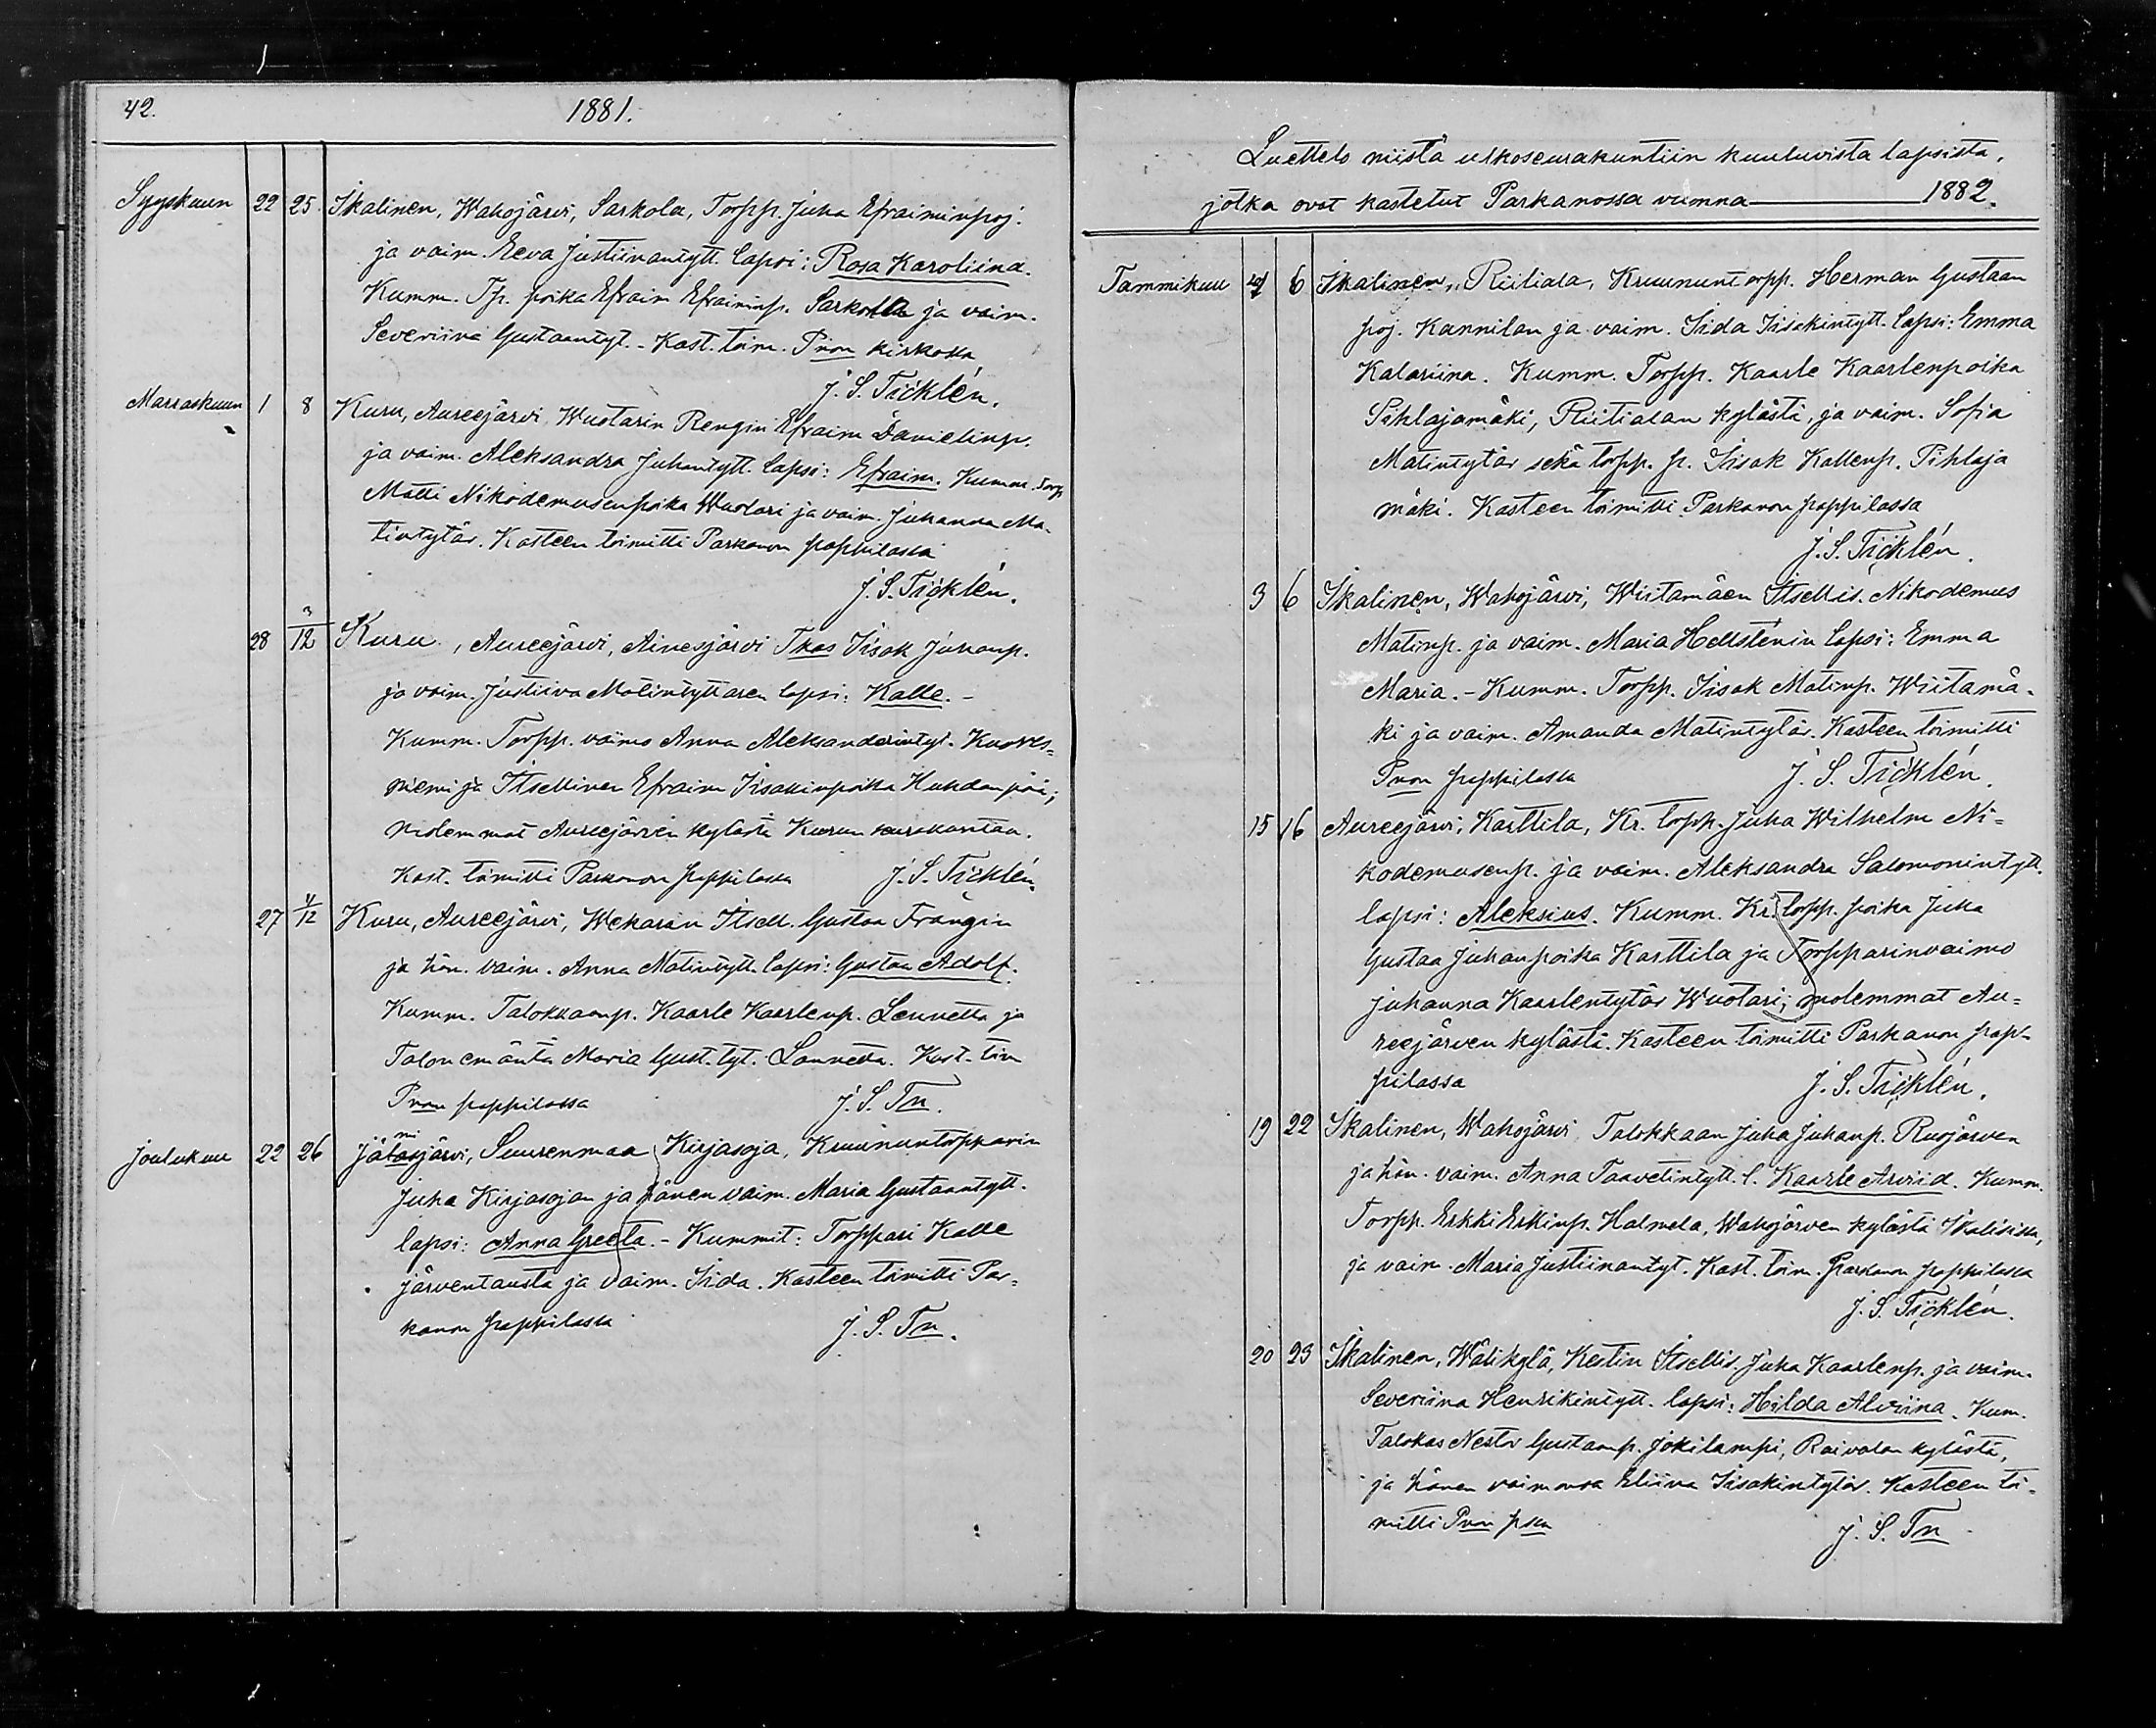 42. 1881.
Syyskuun 22 25. Ikalinen, Wahojärvi, Sarkola, Torpp. Juha Efraiminpoj.
ja vaim. Eeva Justiinantytt. lapsi: Rosa Karoliina.
Kumm. Tp. poika Efraim Efraiminp. Sarkola ja vaim.
Severiina Gustaantyt. - Kast. toim. Pnon kirkossa
J. S. Ticklén.
Marraskuun 1 8 Kuru, Aureejärvi, Wuotarin Rengin Efraim Danielinp.
ja vaim. Aleksandra Juhantytt. lapsi: Efraim. Kumm. Torp
Matti Nikodemusenpoika Wuotari ja vaim. Juhanna Ma-
tintytär. Kasteen toimitti Parkanon pappilassa
J. S. Ticklén.
28 3/12 Kuru, Aureejärvi, Ainesjärvi Tkas Iisak Juhanp.
ja vaim. Justiina Matintyttären lapsi: Kalle. -
Kumm. Torpp. vaimo Anna Aleksanderintyt. Kuores=
niemi ja Itsellinen Efraim Iisakinpoika Huhdanpää;
molemmat Aureejärven kylästä Kurun seurakuntaa.
Kast. toimitti Parkanon pappilassa J. S. Ticklén.
27 4/12 Kuru, Aureejärvi, Wekarin Itsell. Gustaa Frangin
ja hän. vaim. Anna Matintytt. lapsi: Gustaa Adolf.
Kumm. Talokkaanp. Kaarle Kaarlenp. Lennetta ja
Talon emäntä Maria Gust. tyt. Lannetta. Kast. tim
Pnon pappilassa J. S. Tn.
Joulukuu 22 26 Jämijärvi, Suurenmaa Kirjasoja, Kruununtorpparin
Juha Kirjasojan ja hänen vaim. Maria Gustaantytt.
lapsi: Anna Greeta. - Kummit: Torppari Kalle
Järventausta ja vaim. Iida. Kasteen toimitti Par=
kanon pappilassa J. S. Tn.
Luettelo niistä ulkoseurakuntiin kuuluvista lapsista,
jotka ovat kastetut Parkanossa vuonna 1882.
Tammikuu 6 Ikalinen, Riitiala, Kruununtorpp. Herman Gustaan
poj. Kannilan ja vaim. Iida Iisakintytt. lapsi: Emma
Katariina. Kumm. Torpp. Kaarle Kaarlenpoika
Pihlajamäki, Riitialan kylästä, ja vaim. Sofia
Matintytär sekä torpp. p. Iisak Kallenp. Pihlaja
mäki. Kasteen toimitti Parkanon pappilassa
J. S. Ticklén.
3 6 Ikalinen, Wahojärvi, Wiitamäen Itsellis. Nikodemus
Matinp. ja vaim. Maria Hellsténin lapsi: Emma
Maria. - Kumm. Torpp. Iisak Matinp. Wiitamä-
ki ja vaim. Amanda Matintytär. Kasteen toimitti
Pnon pappilassa J. S. Ticklén.
15 16 Aureejärvi, Karttila, Kr. torpp. Juha Wilhelm Ni=
kodemusenp. ja vaim. Aleksandra Salomonintytt.
lapsi: Aleksius. Kumm. Kr. torpp. poika Juha
Gustaa Juhanpoika Karttila ja Torpparinvaimo
Juhanna Kaarlentytär Wuotari; molemmat Au=
reejärven kylästä. Kasteen toimitti Parkanon pap-
pilassa J. S. Ticklén.
19 22 Ikalinen, Wahojärvi Talokkaan Juha Juhanp. Ruojärven
ja hän. vaim. Anna Taavetintytt. l. Kaarle Arvid. Kumm.
Torpp. Erkki Erkinp. Halmela, Wahojärven kylästä Ikalisissa,
ja vaim. Maria Justiinantyt. Kast. toim. Parkanon pappilassa
J. S. Ticklén.
20 23 Ikalinen, Wälikylä, Kestin Itsellis. Juha Kaarlenp. ja vaim.
Severiina Henrikintytt. lapsi: Hilda Alviina. Kum.
Talokas Nestor Gustaanp. Jokilampi, Raivalan kylästä,
ja hänen vaimonsa Eliina Iisakintytär. Kasteen toi-
mitti Pnon pssa J. S. Tn